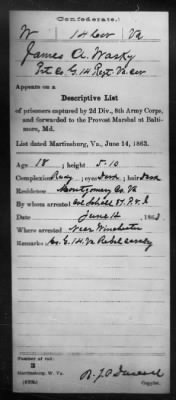 Confederate.
W | 14 Cav | Va
James A. Wasky
Pvt Co G. 14 Regt Va Cav
Appears on a
Descriptive List
of prisoners captured by 2d Div., 8th Army Corps,
and forwarded to the Provost Marshal at Balti-
more, Md.
List dated Martinsburg, Va., June 14, 1863.
Age 18; height 5.10
Complexion; eyes Dark; hair Dark
Residence Montgomery Co. Va
By whom arrested Col Schall
Date June 14, 1863.
Where arrested Near Winchester
Remarks: Co. G. 14. Va Rebel cavalry
Number of roll:
Martinsburg, W. Va.
Copyist.